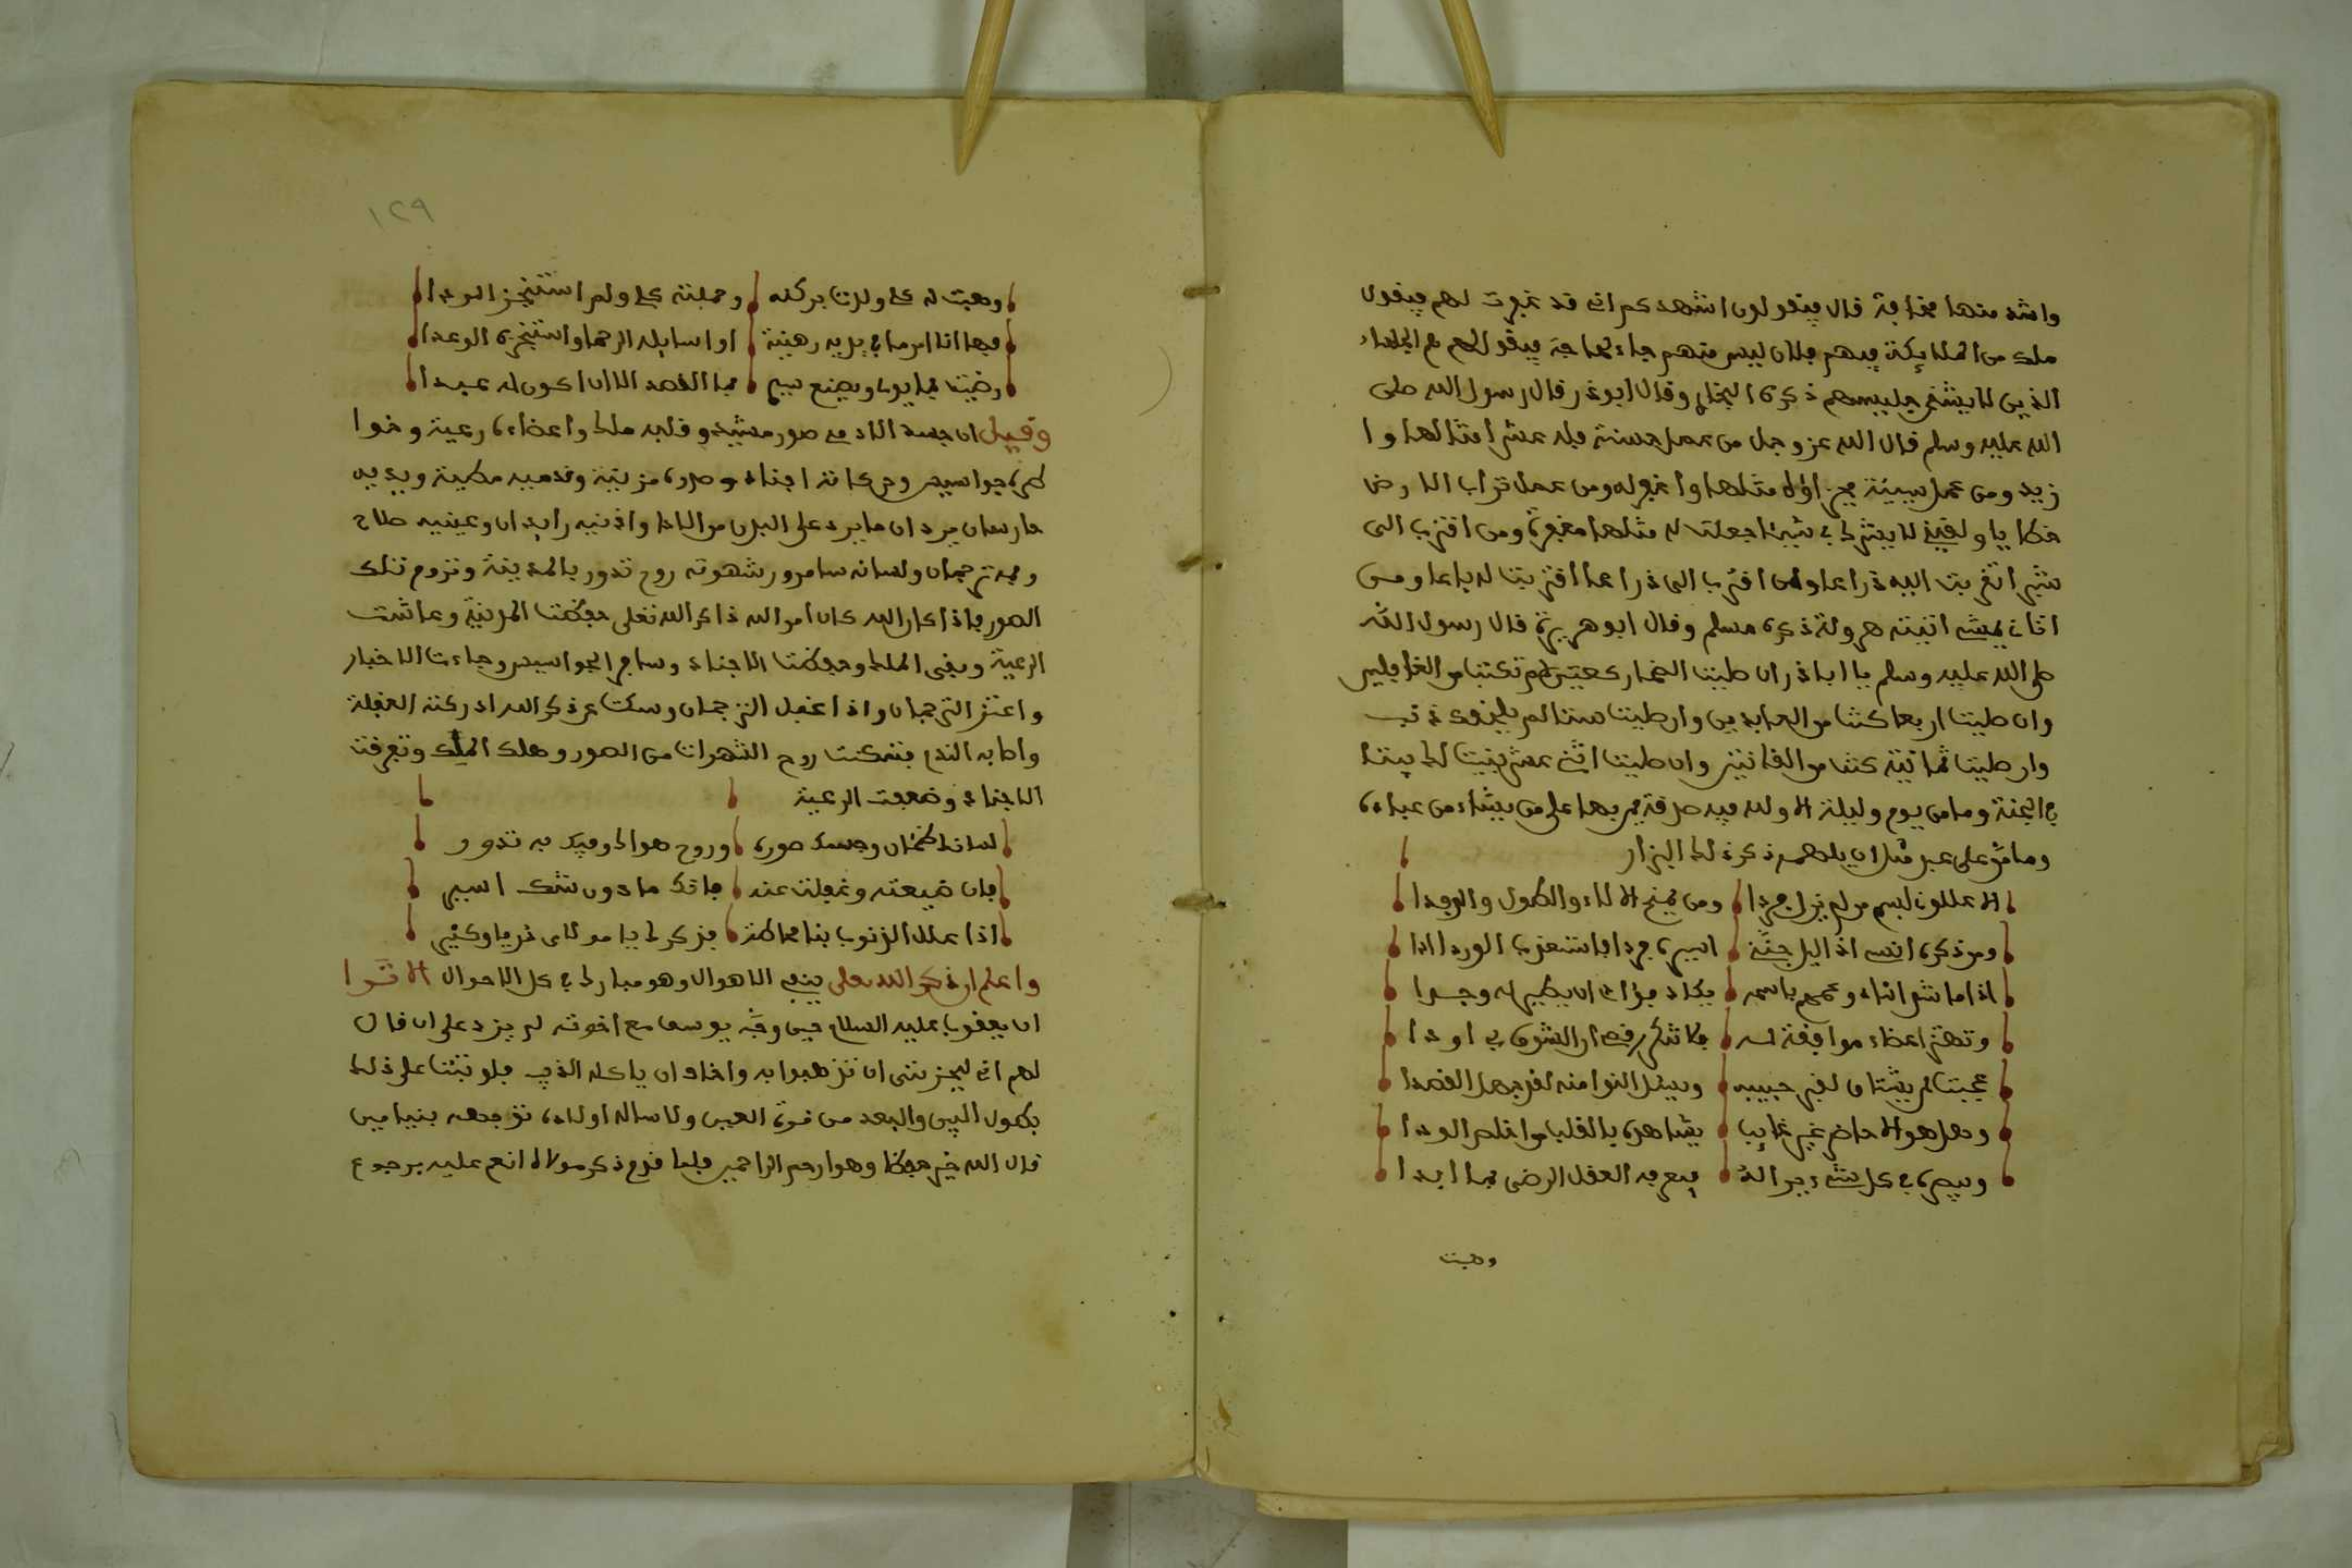 واشد منها مخافة قال فيقولون اشهدكم انى قد غفرت لهم فيقول
ملك من الملائكة فيهم فلان ليس منهم جاء لحاجة فيقول لهم هم الجلساء
الذين لا يشقى جليسهم ذكره البخارى وقال ابوذر قال رسول الله صلى
الله عليه وسلم قال الله عز وجل من عمل حسنة فله عشر امثالها وا
زيد ومن عمل سيئة فجزاؤه مثلها واغفر له ومن عمل تراب الارض
خطايا ولقينى لا يشرك بى شيئا جعلت له مثلها مغفرة ومن اقترب الى
شبرا اقتربت اليه ذراعا ومن اقترب الى ذراعا اقتربت له باعا ومن
اتانى يمشى اتيته هرولة ذكره مسلم وقال ابو هريرة قال رسول الله
صلى الله عليه وسلم يا اباذر ان صليت الضحى ركعتين لم تكتب من الغافلين
وان صليت اربعا كتبت من العابدين وان صليت ستا لم يلحقك ذنب
وان صليت ثمانية كتبت من القانتين وان صليت اثنى عشر بنيت لك بيتا
فى الجنة وما من يوم وليلة الا ولله فيه صدقة يمن بها على من يشاء من عباده
وما من على عبد مثل ان يلهمه ذكره ذكر ذلك البزار
الا عللونى باسم من لم يزل فردا ومن يمنح الالاء والطول والوجدا
ومن ذكره انسى اذ اليل جننى اسيره فردا فاستعذب الوردا
اذا ما شدا شاد وغمغم باسمه يكاد فؤادى ان يطير له وجدا
وتهتز اعضاء موافقة له
عجبت لمن يشتاق لقى حبيبه ويسئل النوا منه لقد جهل القصدا
وهل هو الا حاضر غير غائب يشاهده بالقلب من اخلص الودا
ويبصره فى كل شىء يراله
وهبت
١٢٩
وهبت له كلى ولذت بركنه وحملته كلى ولم استنجز الودا
فها انا امرء ما فى يديه رهينة اوا سايله الرحما واستنجزه الوعدا
رضيت بما يولى ويصنع سيدى فما القصد الا ان اكون له عبدا
وقيل ان جسد الادمى صور مشيد وقلبه ملك واعضاءه رعية وخوا
طره جواسيس وحركاته اجناد وصدره مزينة وقدميه مطية ويديه
حارسان يردان ما يرد على البدن من الاذى واذنيه رايدان وعينيه صلاح
وفيه ترجمان ولسانه سامر وشهوته روح تدور بالمدينة وتروم تلك
الصور فاذا كان العبد كان امر الله ذاكر الله تعلى حفظت المدينة وعاشت
الرعية وبقى الملك وحفظت الاجناد وسافر الجواسيس وجاءت الاخبار
واعتز الترجمان واذا غفل الترجمان وسكت عن ذكر الله ادركته الغفلة
واصابه الندم فتمكنت روح الشهوات من الصور وهلك الملك وتفرقت
الاجناد وضعفت الرعية
لسانك ترجمان وجسمك صورة وروح هواك وفيك به تدور
فان ضيعته وغفلت عنه فانك ما دون شك اسير
اذا علل الذنوب بنا احاطت فذكرك يا مولاى
واعلم ان ذكر الله تعلى ينفى الاهوال وهو مبارك فى كل الاحوال الا ترا
ان يعقوب عليه السلام حين وجه يوسف مع اخوته لم يزد على ان قال
لهم انى ليحزننى ان تذهبوا به واخاف ان ياكله الذيب فلو ثبتت على ذلك
بطول البين والبعد من قرة العين ولما ساله اولاده توجه بنيامين
قال الله خير حفظا وهو ارحم الراحمين فلما قدم ذكر مولاه انعم عليه برجوع